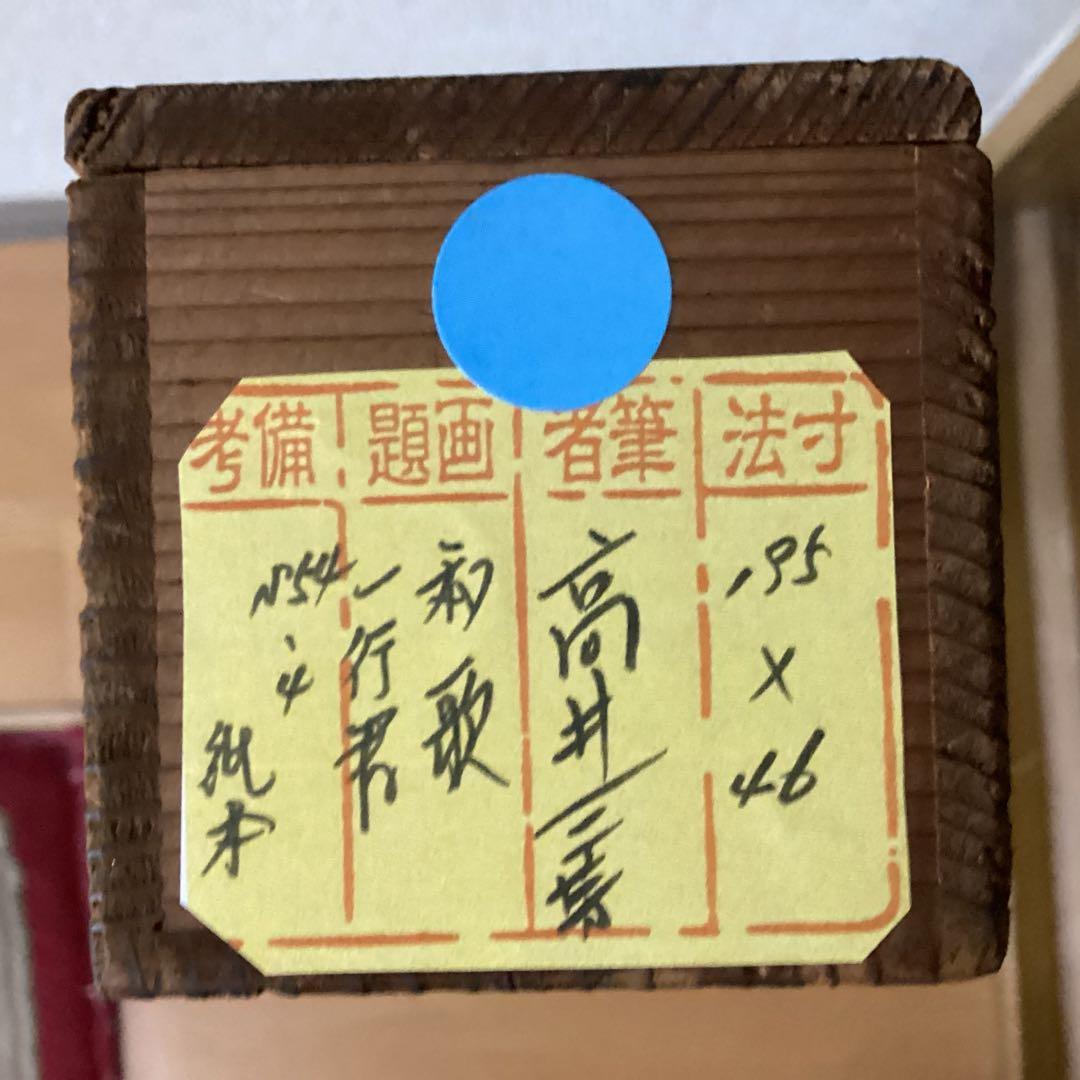 寸法
筆者
画題
備考
195
×
46
高井
和歌
一行書
54
、4
紙本